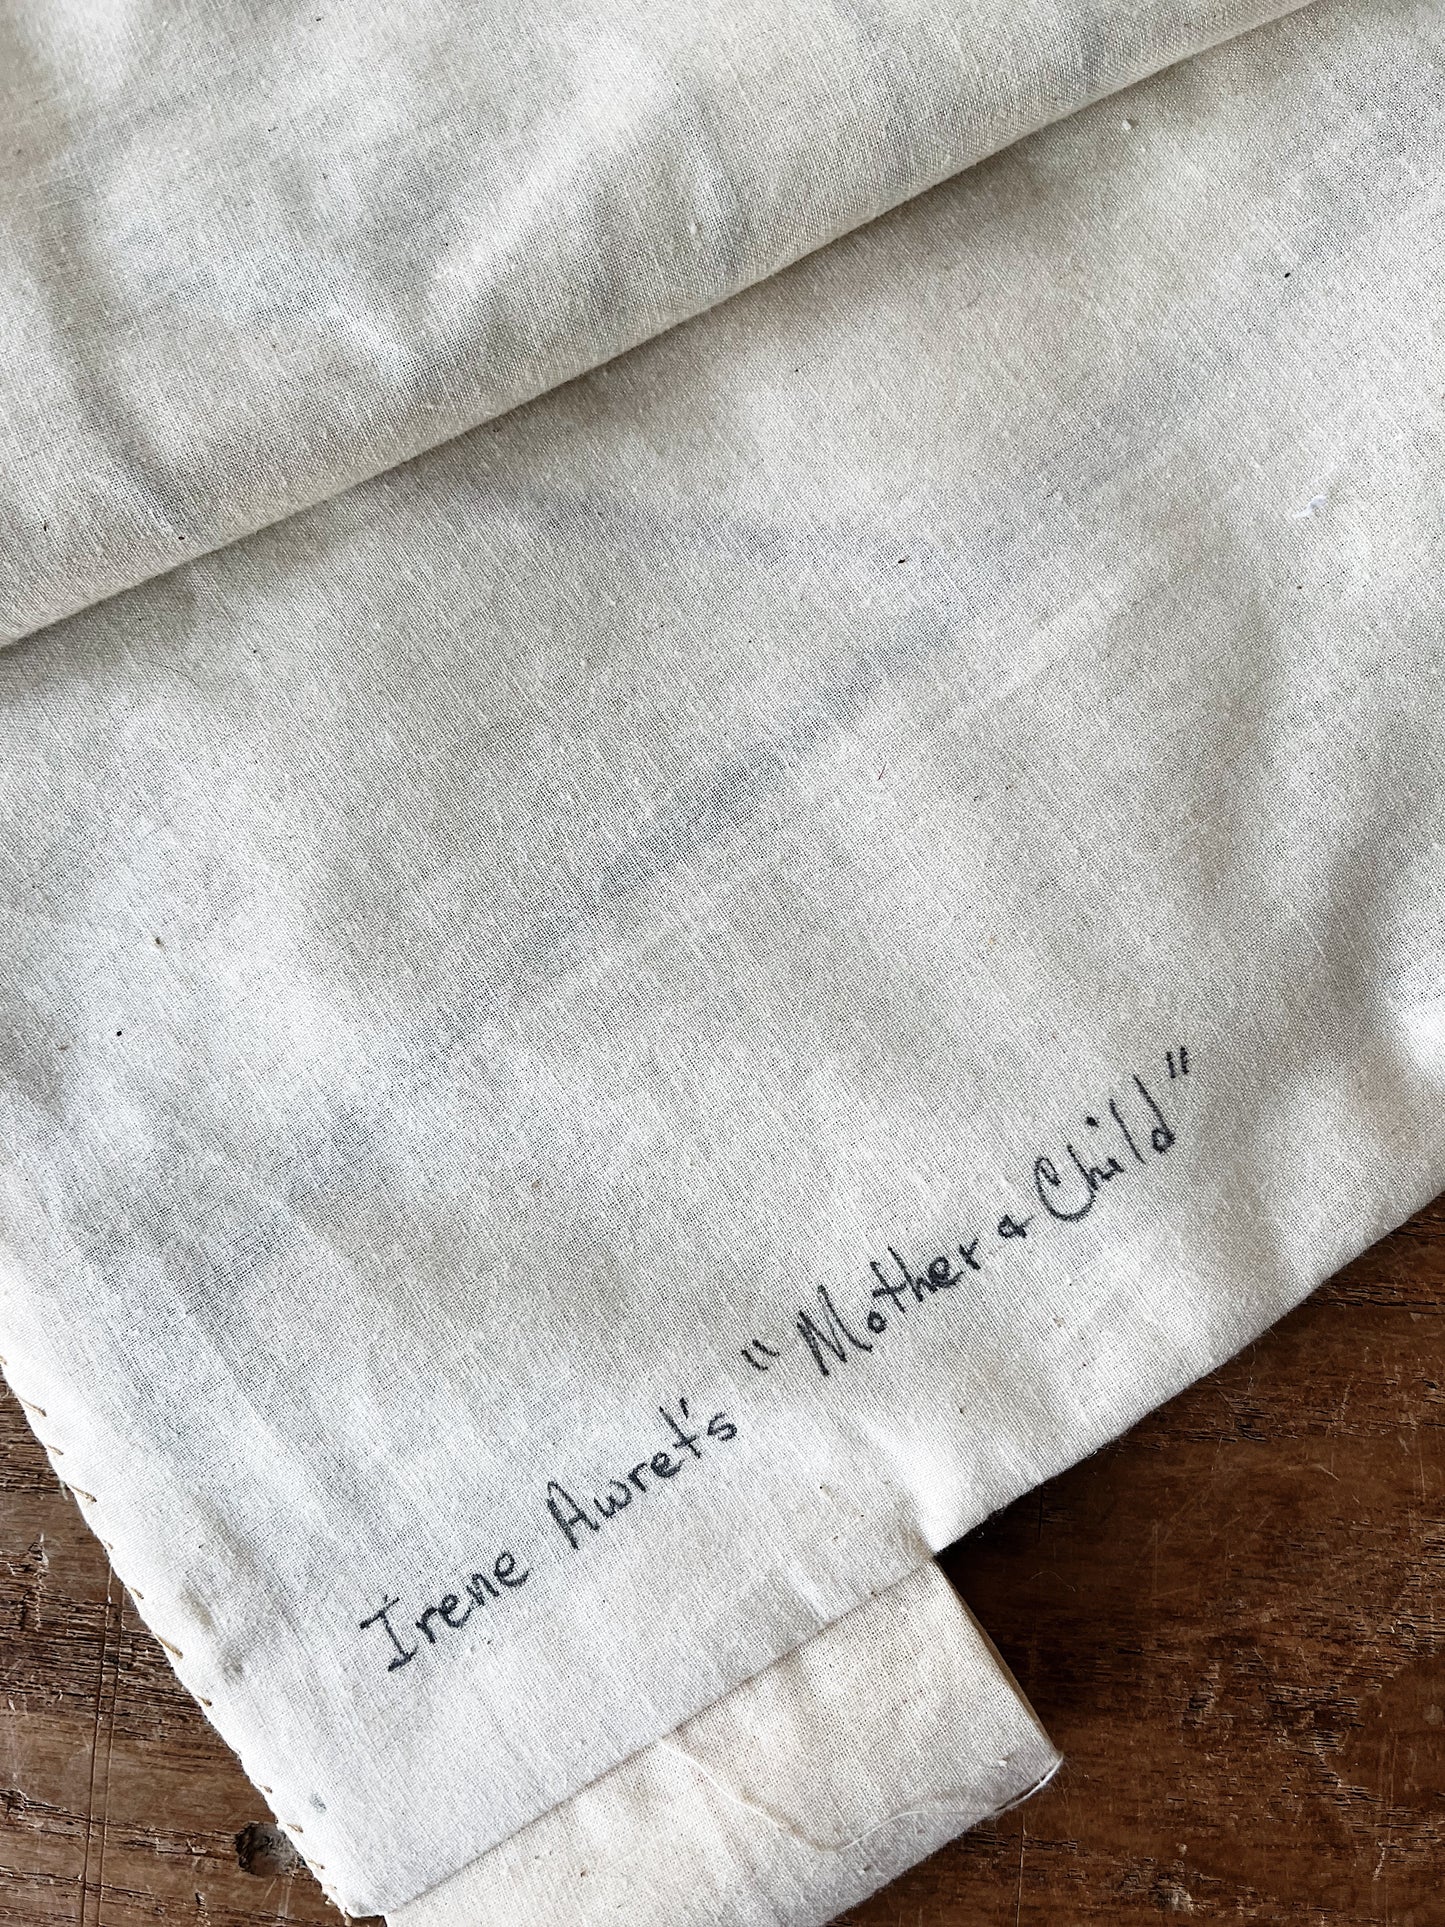 Irene Awret's "Mother & Child"